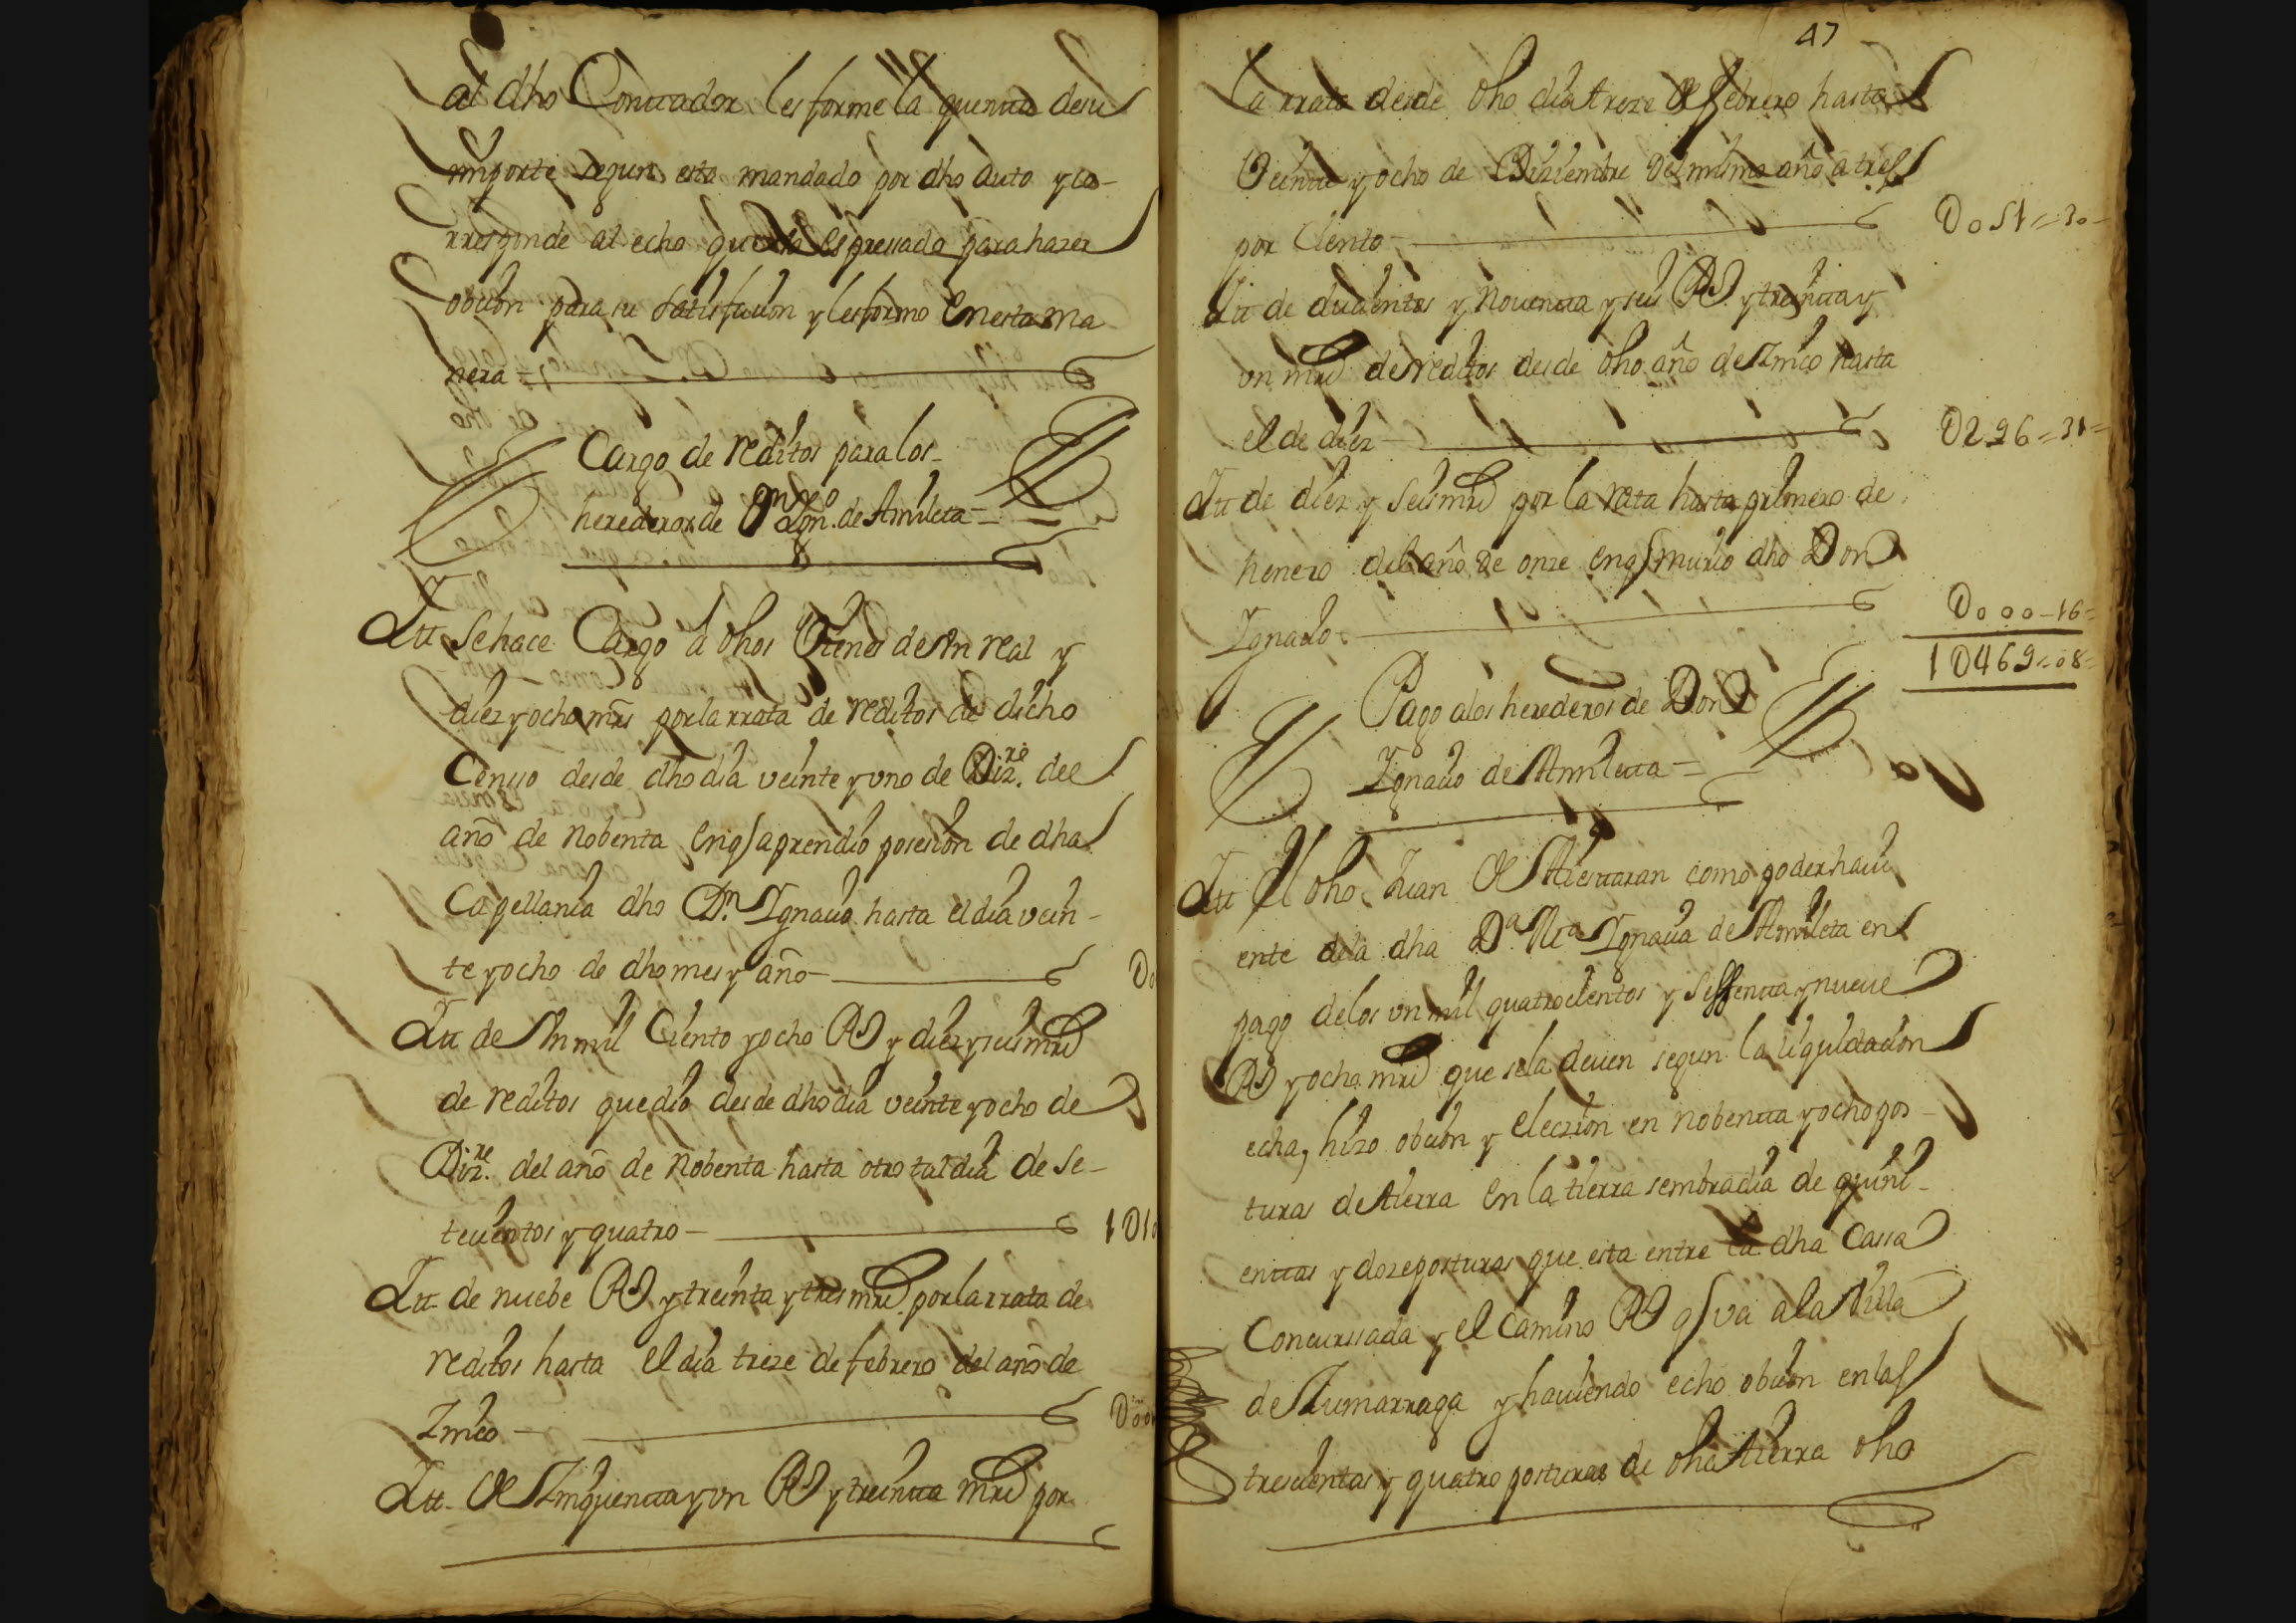 al dho Contador les forme la quenta de su
importe segun esta mandado por dho auto y co-
rresponde al echo que esta espressado para hazer
obcion para su satisfacion y les formo en esta ma
nera
Cargo de reditos para los
herederos de Dn. Ygnº. de Amileta
Itt Se hace Cargo a dhos Vienes de Un real y
diez y ocho mrs por la rrata de reditos de dicho
Censso desde dho dia veinte y uno de Dizre. del
año de nobenta en q aprendio posesion de dha
Capellania dho Dn. Ygnacio hasta el dia vein-
te y ocho de dho mes y año
Itt de Un mil Ciento y ocho Rs y diez y seis mrs
de reditos que dio desde dho dia veinte y ocho de
Dizre. del año de Nobenta hasta otro tal dia de Se-
tecientos y quatro
Itt de nuebe Rs y treinta y tres mrs por la rrata de
reditos hasta el dia treze de febrero del año de
Zinco
Itt de Zinquenta y un Rs y treinta mrs por
47
la rrata desde dho dia treze de febrero hasta
Veinte y ocho de Diziembre del mismo año a tres
por Ciento D051=30
Itt de ducientos y Noventa y seis Rs y treinta y
un mrs de reditos desde dho año de Zinco hasta
el de diez D296=31=
Itt de diez y seis mrs por la rata hasta primero de
henero del año de onze en q murio dho Don
Ygnacio D000-16=
1D469=08=
Pago a los herederos de Don
Ygnacio de Amileta
Itt El dho Juan de Alcuaran como poder havi
ente de la dha Da. Ma Ygnacia de Amileta en
pago de los un mil quatrocientos y Sessenta y nueve
Rs y ocho mrs que se la deven segun la liquidacion
echa, hizo obcion y eleczion en nobenta y ocho pos-
turas de tierra en la tierra sembradia de quini-
entas y doze posturas que esta entre la dha Cassa
Concurssada y el Camino Rl q va a la Villa
de Zumarraga y haviendo echo obcion en las
trescientas y quatro posturas de dha tierra dho